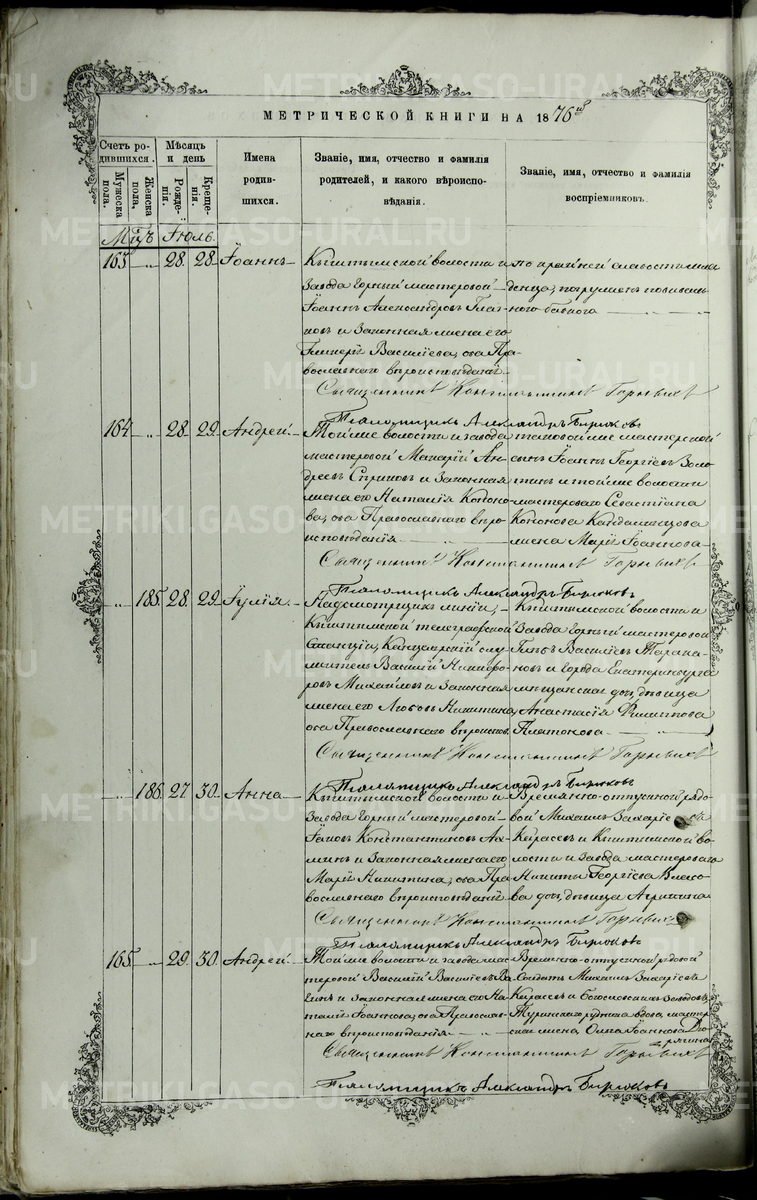 МЕТРИЧЕСКОЙ КНИГИ НА 1876й
Счетъ родившихся.
Мужеска пола.
Женска пола.
Мѣсяцъ и день
Рожденія.
Крещенія.
Имена родившихся.
Званіе, имя, отчество и фамилія родителей, и какого вѣроисповѣданія.
Званіе, имя, отчество и фамилія воспріемниковъ.
Мцъ Іюль.
163 „ 28. 28. Іоаннъ
Кыштымской волости и
завода горный мастеровой
Іоаннъ Александровъ
новъ и законная жена его
Гликерія Василіева, оба Пра-
вославнаго вѣроисповѣданія.
по крайней слабости мла-
денца, погруженъ повиваль-
ного бабкого
Священникъ Константинъ
Псаломщикъ Александръ Бирюковъ
164 „ 28. 29. Андрей.
Той же волости и завода
мастеровой Макарій Ан-
дреевъ и законная
жена его Наталія Конono-
ва, оба Православнаго вѣро-
исповѣданія
таковой же мастерской
сынъ Іоаннъ Георгіевъ Золо-
и той же волости
мастероваго Севастіана
Кононова
жена Марія Іоаннова
Священникъ Константинъ
Псаломщикъ Александръ Бирюковъ
„ 185. 28. 29. Іулія.
Надсмотрщикъ линіи,
Кыштымской телеграфской
Станціи, Канцелярскій слу-
житель Василій Никифо-
ровъ Михайловъ и законная
жена его Любовь Никитина,
оба Православнаго вѣроиспов.
Кыштымской волости и
завода горный мастеровой
Глѣбъ Василіевъ Тарака-
новъ и города Екатеринбурга
мѣщанская дочь, дѣвица
Анастасія Филиппова
Платонова
Священникъ Константинъ
Псаломщикъ Александръ Бирюковъ
„ 186. 27. 30. Анна
Кыштымской волости и
завода горный мастеровой
Іаковъ Константиновъ
и законная жена его
Марія Никитина, оба Пра-
вославнаго вѣроисповѣданія
Временно-отпускной рядо-
вой Михаилъ Захаріевъ
Карасевъ и Кыштымской во-
лости и завода мастероваго
Никиты Георгіева Власо-
ва дочь, дѣвица Агриппина
Священникъ Константинъ
Псаломщикъ Александръ Бирюковъ
165. „ 29. 30. Андрей
Той же волости и завода мас-
теровой Василій Василіевъ
и законная жена его На-
талія Іоаннова, оба Православ-
наго вѣроисповѣданія
Временно-отпускной рядовой
Солдатъ Михаилъ Захаріевъ
Карасевъ и Богословскихъ заводовъ,
Турьинскаго рудника вдова, мастер-
ская жена, Ольга Іоаннова
Священникъ Константинъ
Псаломщикъ Александръ Бирюковъ
METRIKI.GASO-URAL.RU